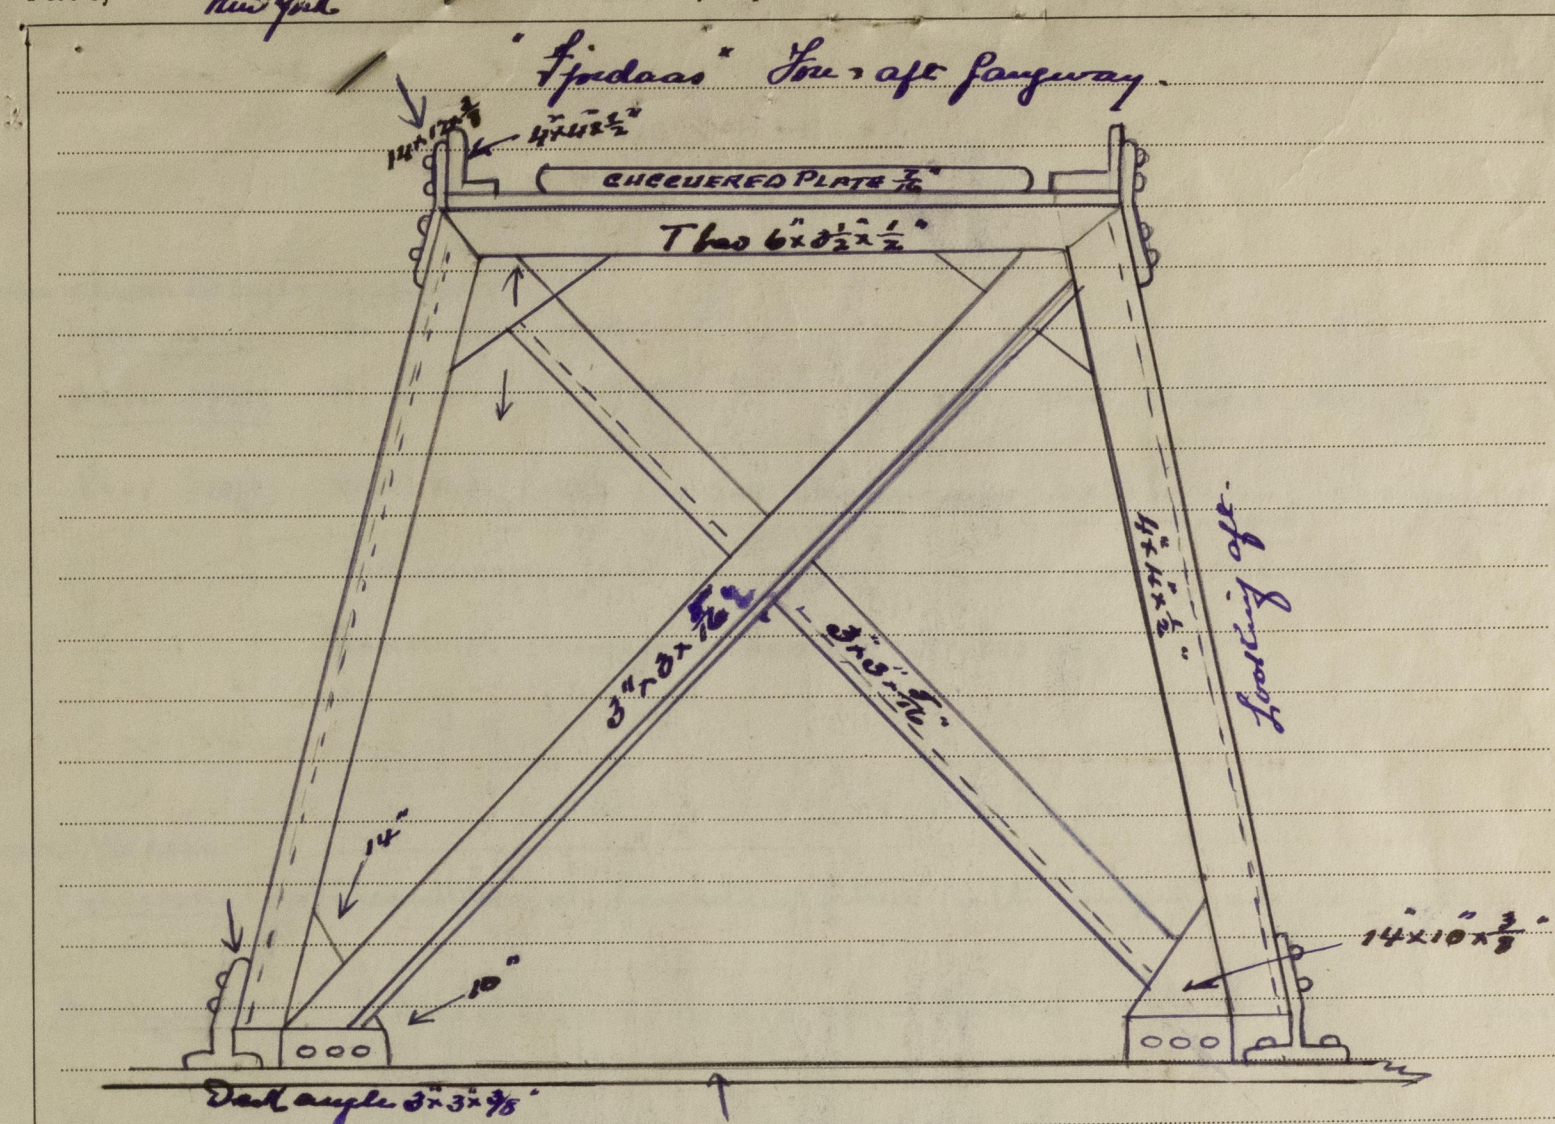 New York
"Fjordaas" Fore & aft Gangway.
14" x 12" x 3/8
4" x 4" x 1/2"
CHECQUERED PLATE 7/16"
T bar 6" x 3 1/2" x 1/2"
4" x 4" x 1/2"
Looking aft.
3" x 3 x 5/16"
3" x 3" x 5/16"
14"
10"
14" x 10" x 3/8"
Deck angle 3" x 3" x 3/8"